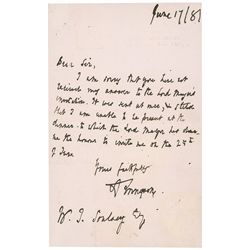 June 17/81
Dear Sir,
I am sorry that you have not
received my answer to the Lord Mayor's
invitation. It was sent at once, & stated
that I am unable to be present at the
dinner to which the Lord Mayor has done
me the honour to invite me on the
of June
Yours faithfully
W. J. Soulsby Esq